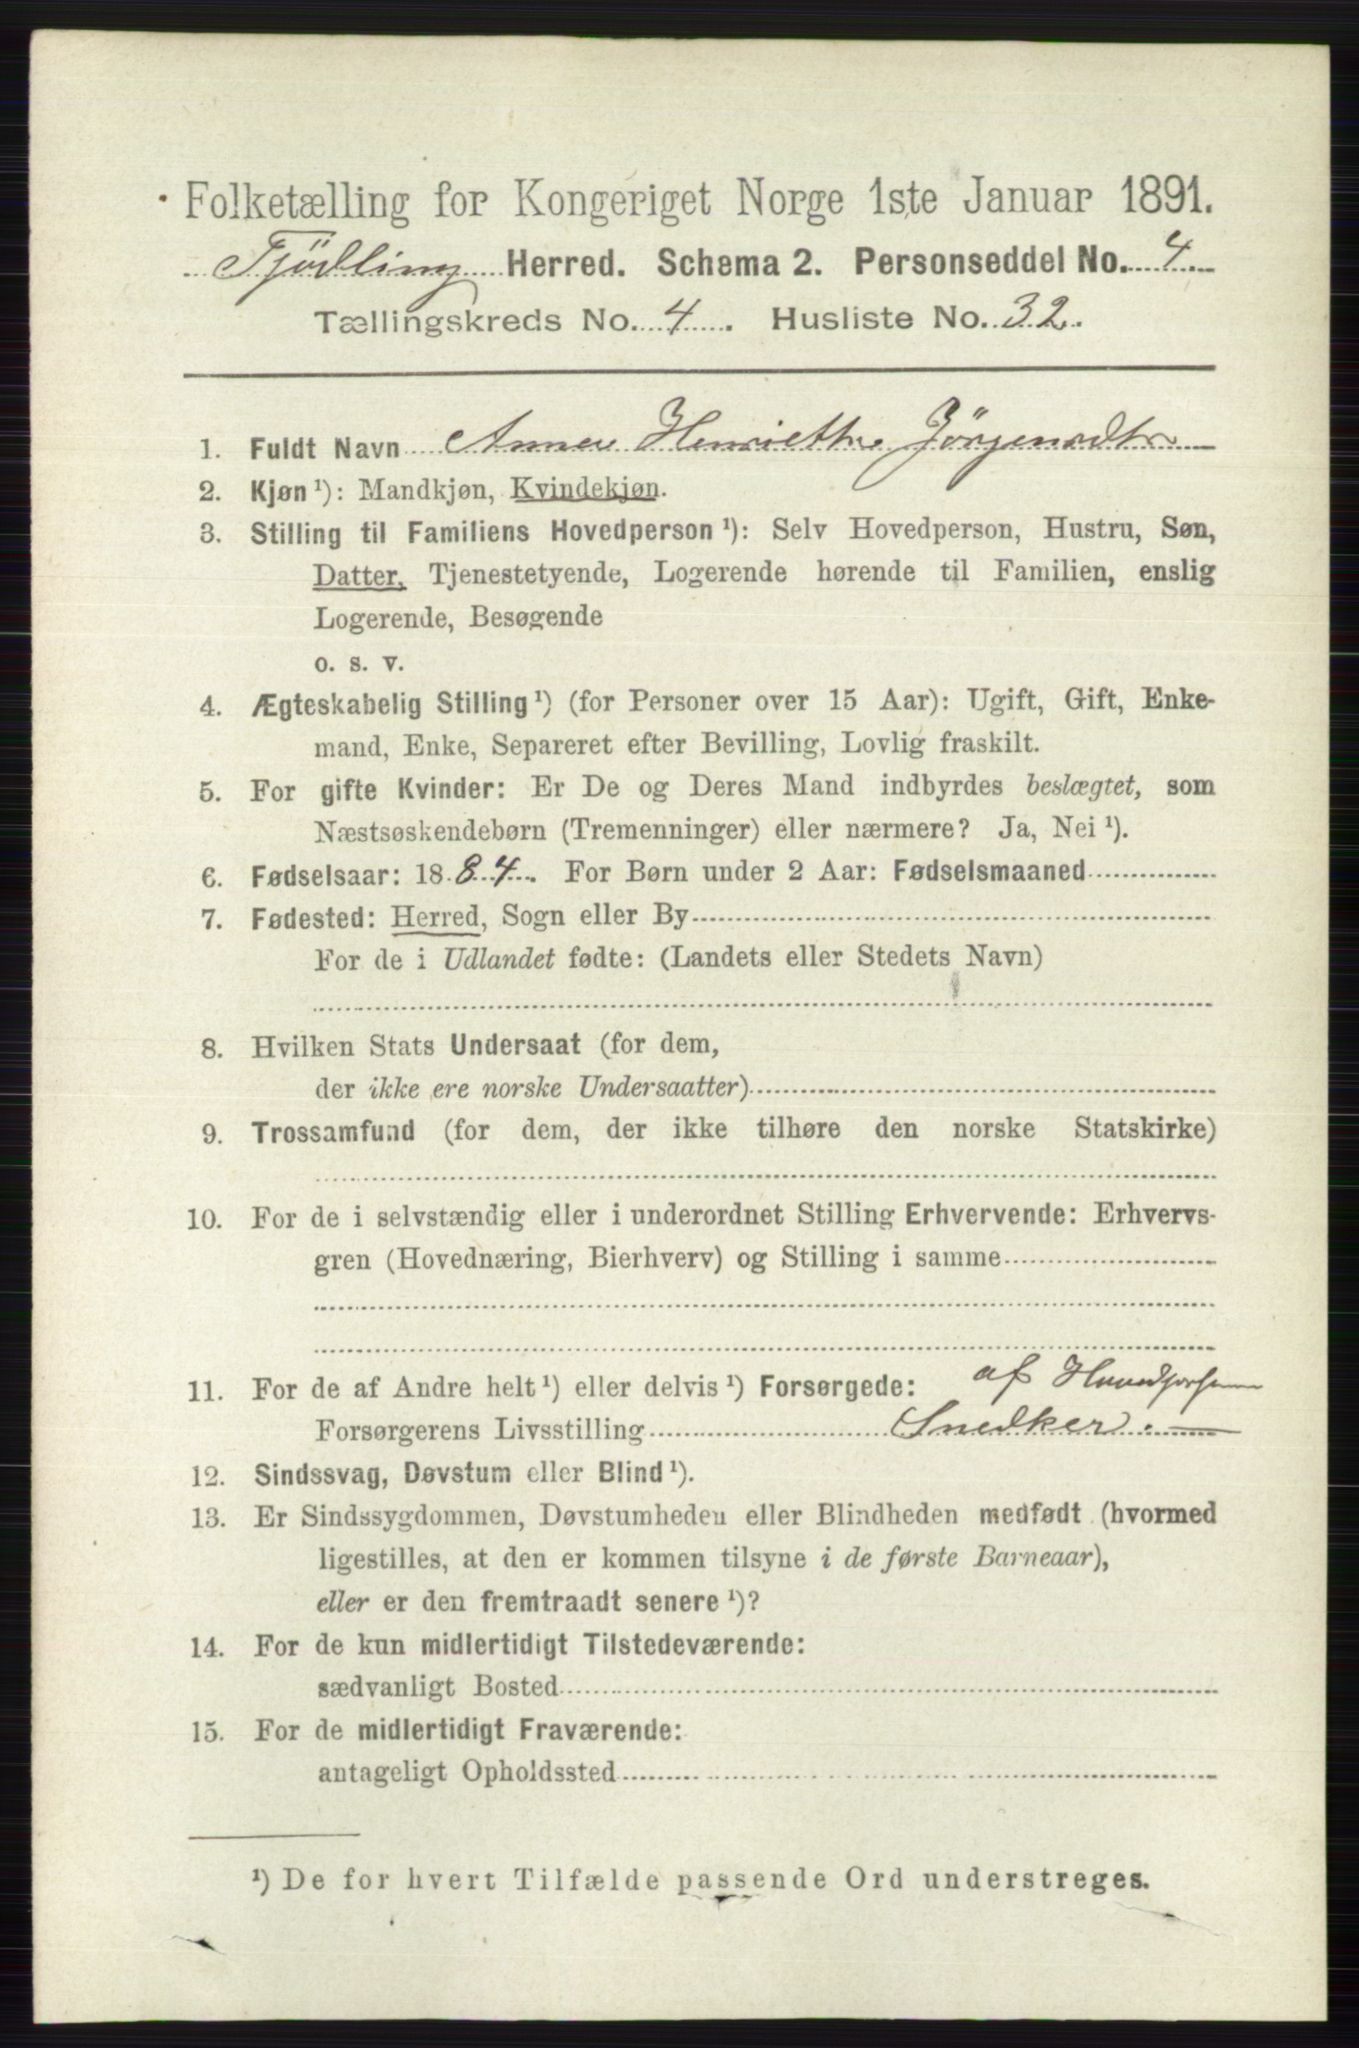 Folketælling for Kongeriget Norge 1ste Januar 1891.
Tjödling Herred. Schema 2. Personseddel No. 4
Tællingskreds No. 4. Husliste No. 32.
1. Fuldt Navn Anne Henriette Jörgensdtr
2. Kjøn ¹): Mandkjøn, Kvindekjøn.
3. Stilling til Familiens Hovedperson ¹): Selv Hovedperson, Hustru, Søn,
Datter, Tjenestetyende, Logerende hørende til Familien, enslig
Logerende, Besøgende
o. s. v.
4. Ægteskabelig Stilling ¹) (for Personer over 15 Aar): Ugift, Gift, Enke-
mand, Enke, Separeret efter Bevilling, Lovlig fraskilt.
5. For gifte Kvinder: Er De og Deres Mand indbyrdes beslægtet, som
Næstsøskendebørn (Tremenninger) eller nærmere? Ja, Nei ¹).
6. Fødselsaar: 1884. For Børn under 2 Aar: Fødselsmaaned
7. Fødested: Herred, Sogn eller By
For de i Udlandet fødte: (Landets eller Stedets Navn)
8. Hvilken Stats Undersaat (for dem,
der ikke ere norske Undersaatter)
9. Trossamfund (for dem, der ikke tilhøre den norske Statskirke)
10. For de i selvstændig eller i underordnet Stilling Erhvervende: Erhvervs-
gren (Hovednæring, Bierhverv) og Stilling i samme
11. For de af Andre helt ¹) eller delvis ¹) Forsørgede: af
Forsørgerens Livsstilling Snedker.
12. Sindssvag, Døvstum eller Blind ¹).
13. Er Sindssygdommen, Døvstumheden eller Blindheden medfødt (hvormed
ligestilles, at den er kommen tilsyne i de første Barneaar),
eller er den fremtraadt senere ¹)?
14. For de kun midlertidigt Tilstedeværende:
sædvanligt Bosted
15. For de midlertidigt Fraværende:
antageligt Opholdssted
¹) De for hvert Tilfælde passende Ord understreges.